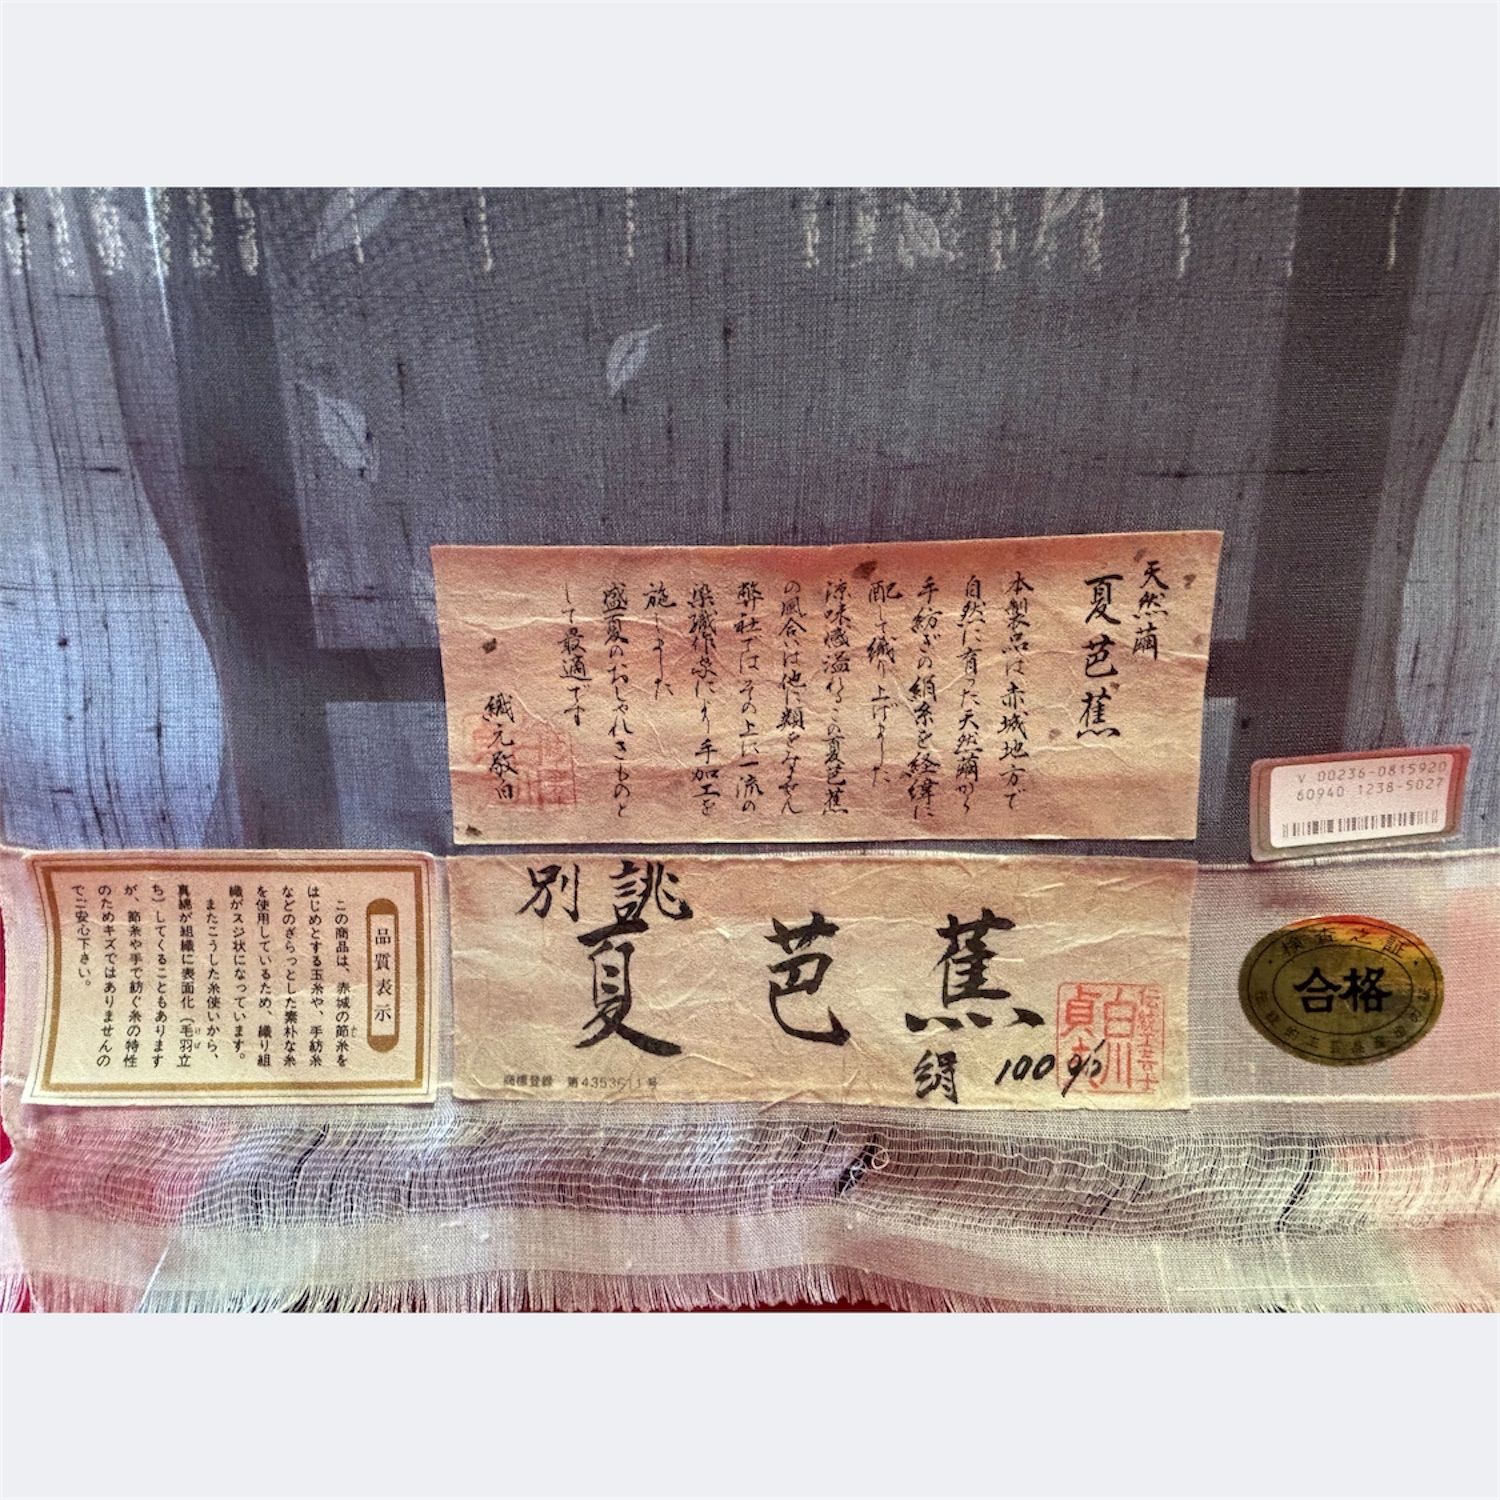 天然繭
夏芭蕉
本製品は赤城地方で
自然に育った天然繭から
手紡ぎの絹糸を経緯に
配して織り上げました
涼味感溢れるこの夏芭蕉
の風合いは他に類をみません
弊社ではその上に一流の
染織作家により手加工を
施しました
盛夏のおしゃれきものと
して最適です
織元敬白
V 00236-0815920
60940 1238-5027
品質表示
この商品は、赤城の節糸を
はじめとする玉糸や、手紡糸
などのざらっとした素朴な糸
を使用しているため、織り組
織がスジ状になっています。
またこうした糸使いから、
真綿が組織に表面化（毛羽立
ち）してくることもあります
が、節糸や手で紡ぐ糸の特性
のためキズではありませんの
でご安心下さい。
別誂
夏芭蕉
絹 100%
伝統工芸士
白川
貞夫
商標登録 第4353611号
検査之証
合格